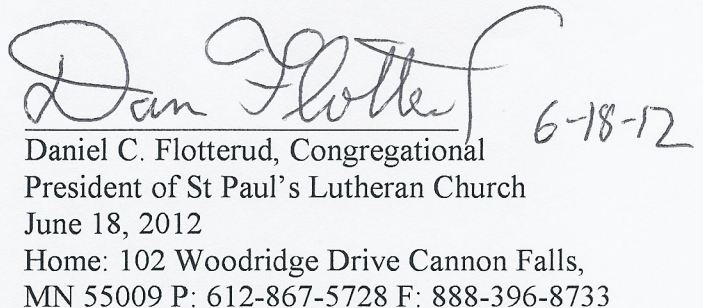 Dan Flotterud 6-18-12
Daniel C. Flotterud, Congregational
President of St Paul's Lutheran Church
June 18, 2012
Home: 102 Woodridge Drive Cannon Falls,
MN 55009 P: 612-867-5728 F: 888-396-8733